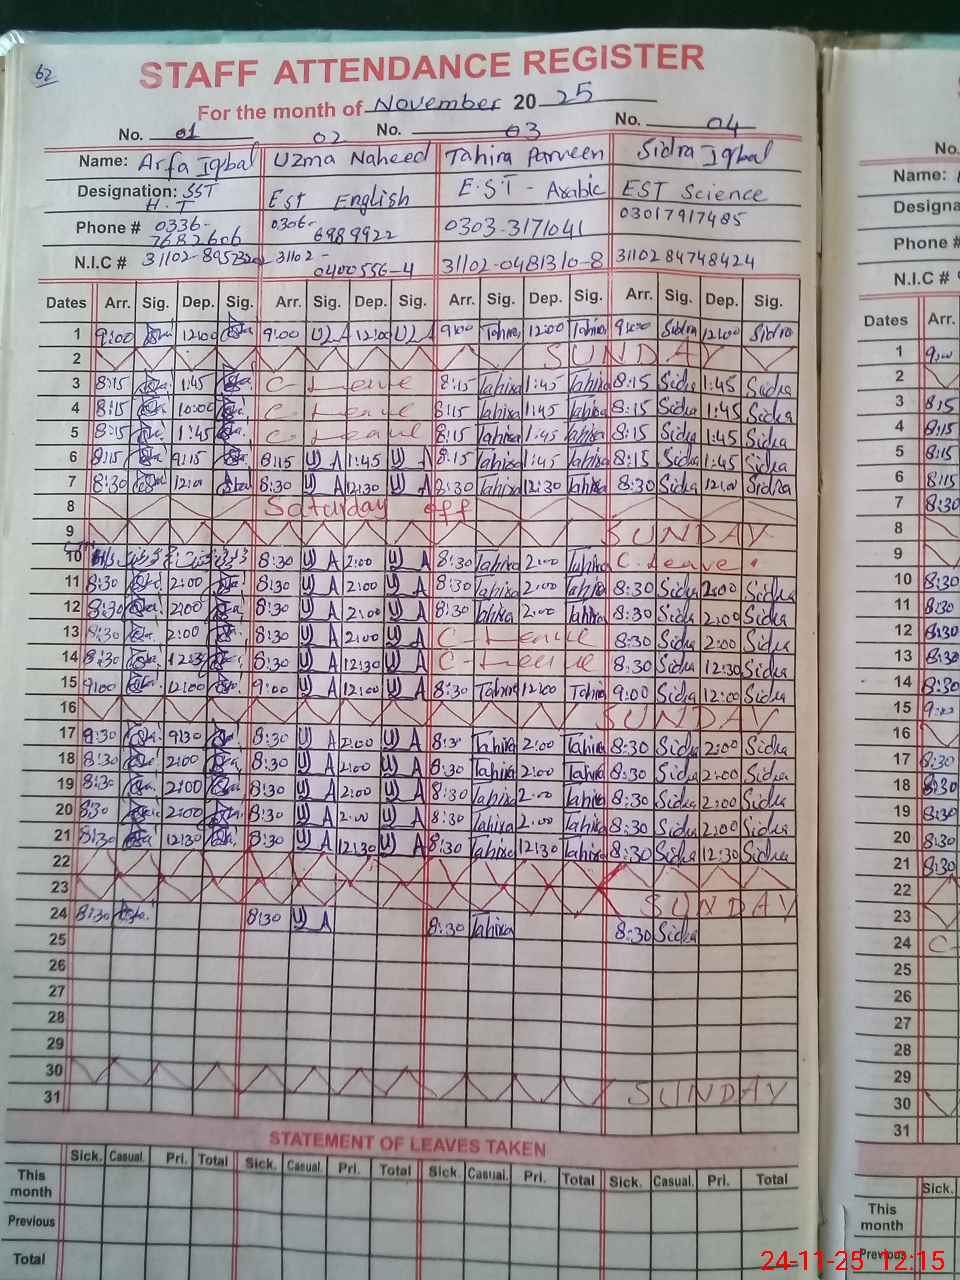 62
STAFF ATTENDANCE REGISTER
For the month of November 20 25
No. 01 02 No. 03 No. 04
Name: Arfa Iqbal Uzma Naheed Tahira Parveen Sidra Iqbal
Designation: SST H.T EST English E.S.T - Arabic EST Science
Phone # 0336-7682606 0306-6989922 0303-3171041 03017917485
N.I.C # 31102- 31102-0400556-4 31102-0481310-8 3110284748424
Dates Arr. Sig. Dep. Sig. Arr. Sig. Dep. Sig. Arr. Sig. Dep. Sig. Arr. Sig. Dep. Sig.
1 9:00 12:00 9:00 U A 12:00 U A 9:00 Tahira 12:00 Tahira 9:00 Sidra 12:00 Sidra
2 SUNDAY
3 8:15 1:45 C Leave 8:15 Tahira 1:45 Tahira 8:15 Sidra 1:45 Sidra
4 8:15 10:00 C Leave 8:15 Tahira 1:45 Tahira 8:15 Sidra 1:45 Sidra
5 8:15 1:45 C Leave 8:15 Tahira 1:45 Tahira 8:15 Sidra 1:45 Sidra
6 8:15 9:15 8:15 U A 1:45 U A 8:15 Tahira 1:45 Tahira 8:15 Sidra 1:45 Sidra
7 8:30 12:00 8:30 U A 12:30 U A 8:30 Tahira 12:30 Tahira 8:30 Sidra 12:00 Sidra
8 Saturday off
9 SUNDAY
10 8:30 U A 2:00 U A 8:30 Tahira 2:00 Tahira C-Leave.
11 8:30 2:00 8:30 U A 2:00 U A 8:30 Tahira 2:00 Tahira 8:30 Sidra 2:00 Sidra
12 8:30 2:00 8:30 U A 2:00 U A 8:30 Tahira 2:00 Tahira 8:30 Sidra 2:00 Sidra
13 8:30 2:00 8:30 U A 2:00 U A C-Leave 8:30 Sidra 2:00 Sidra
14 8:30 12:30 8:30 U A 12:30 U A C-Leave 8:30 Sidra 12:30 Sidra
15 9:00 12:00 9:00 U A 12:00 U A 8:30 Tahira 12:00 Tahira 9:00 Sidra 12:00 Sidra
16 SUNDAY
17 8:30 9:30 8:30 U A 2:00 U A 8:30 Tahira 2:00 Tahira 8:30 Sidra 2:00 Sidra
18 8:30 2:00 8:30 U A 2:00 U A 8:30 Tahira 2:00 Tahira 8:30 Sidra 2:00 Sidra
19 8:30 2:00 8:30 U A 2:00 U A 8:30 Tahira 2:00 Tahira 8:30 Sidra 2:00 Sidra
20 8:30 2:00 8:30 U A 2:00 U A 8:30 Tahira 2:00 Tahira 8:30 Sidra 2:00 Sidra
21 8:30 12:30 8:30 U A 12:30 U A 8:30 Tahira 12:30 Tahira 8:30 Sidra 12:30 Sidra
22
23 SUNDAY
24 8:30 8:30 U A 8:30 Tahira 8:30 Sidra
25
26
27
28
29
30 SUNDAY
31
STATEMENT OF LEAVES TAKEN
Sick. Casual. Pri. Total Sick. Casual. Pri. Total Sick. Casual. Pri. Total Sick. Casual. Pri. Total
This month
Previous
Total
No.
Name:
Designa
Phone #
N.I.C #
Dates Arr.
1 9:00
2
3 8:15
4 8:15
5 8:15
6 8:15
7 8:30
8
9
10 8:30
11 8:30
12 8:30
13 8:30
14 8:30
15 9:00
16
17 8:30
18 8:30
19 8:30
20 8:30
21 8:30
22
23
24 C-
25
26
27
28
29
30
31
Sick.
This month
Previous
24-11-25 12:15